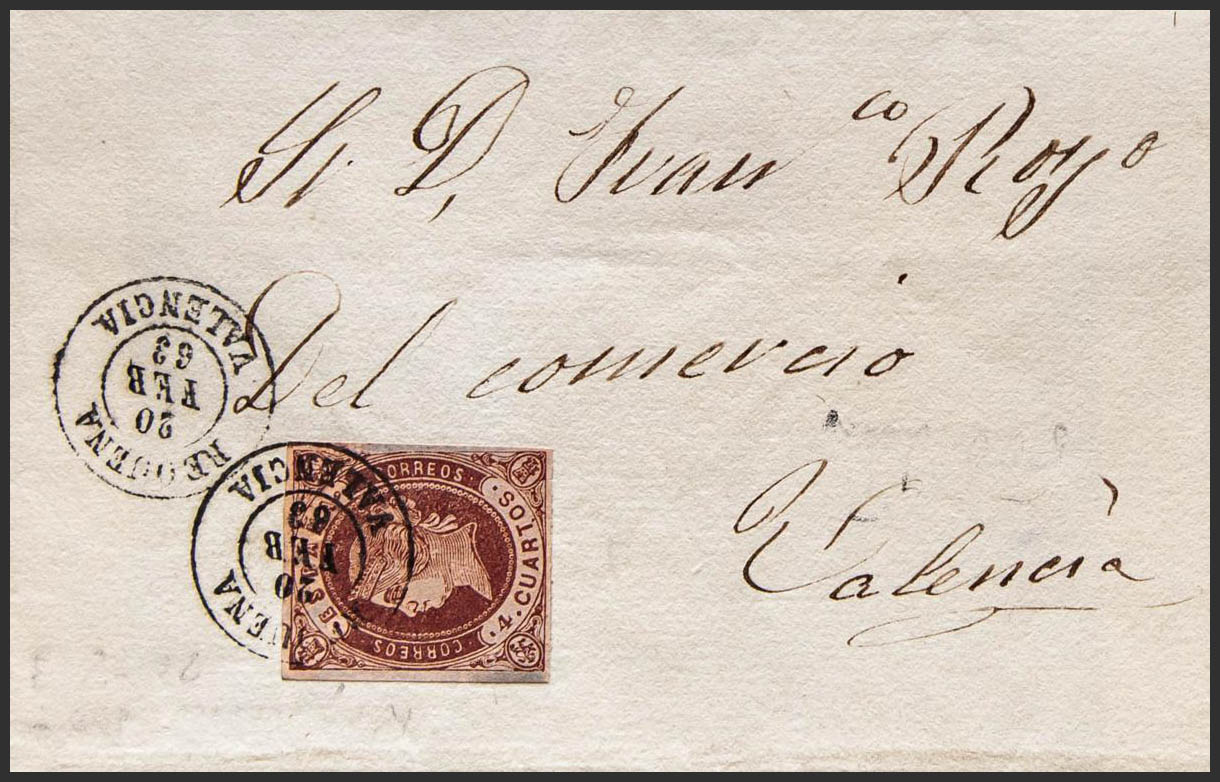 Sr. D. Fran co Royo
Del comercio
Valencia
REQUENA
20
FEB
63
VALENCIA
QUENA
20
FEB
63
VALENCIA
CORREOS
4 CUARTOS
CORREOS